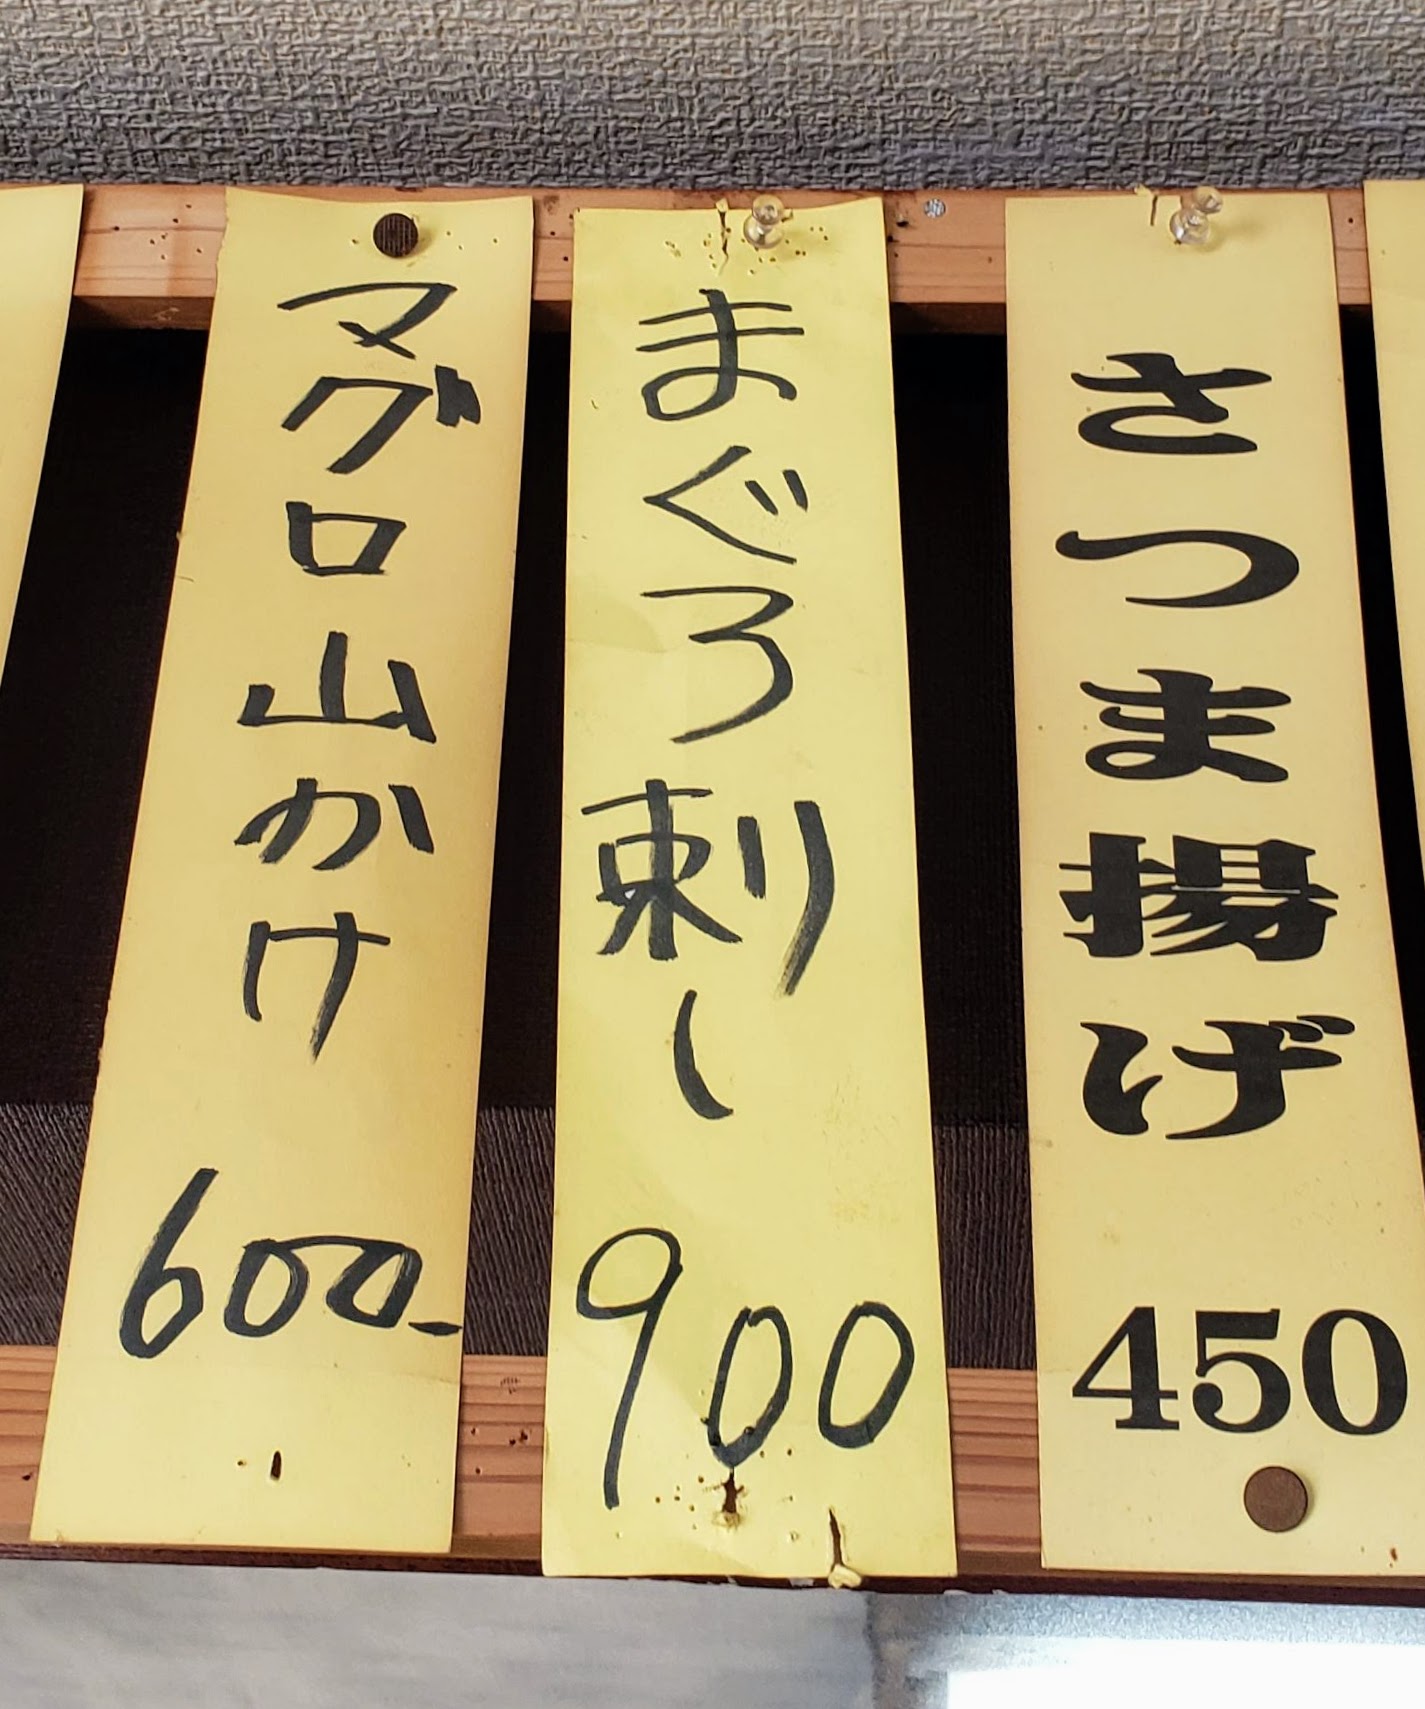 さつま揚げ
450
まぐろ刺し
900
マグロ山かけ
600-